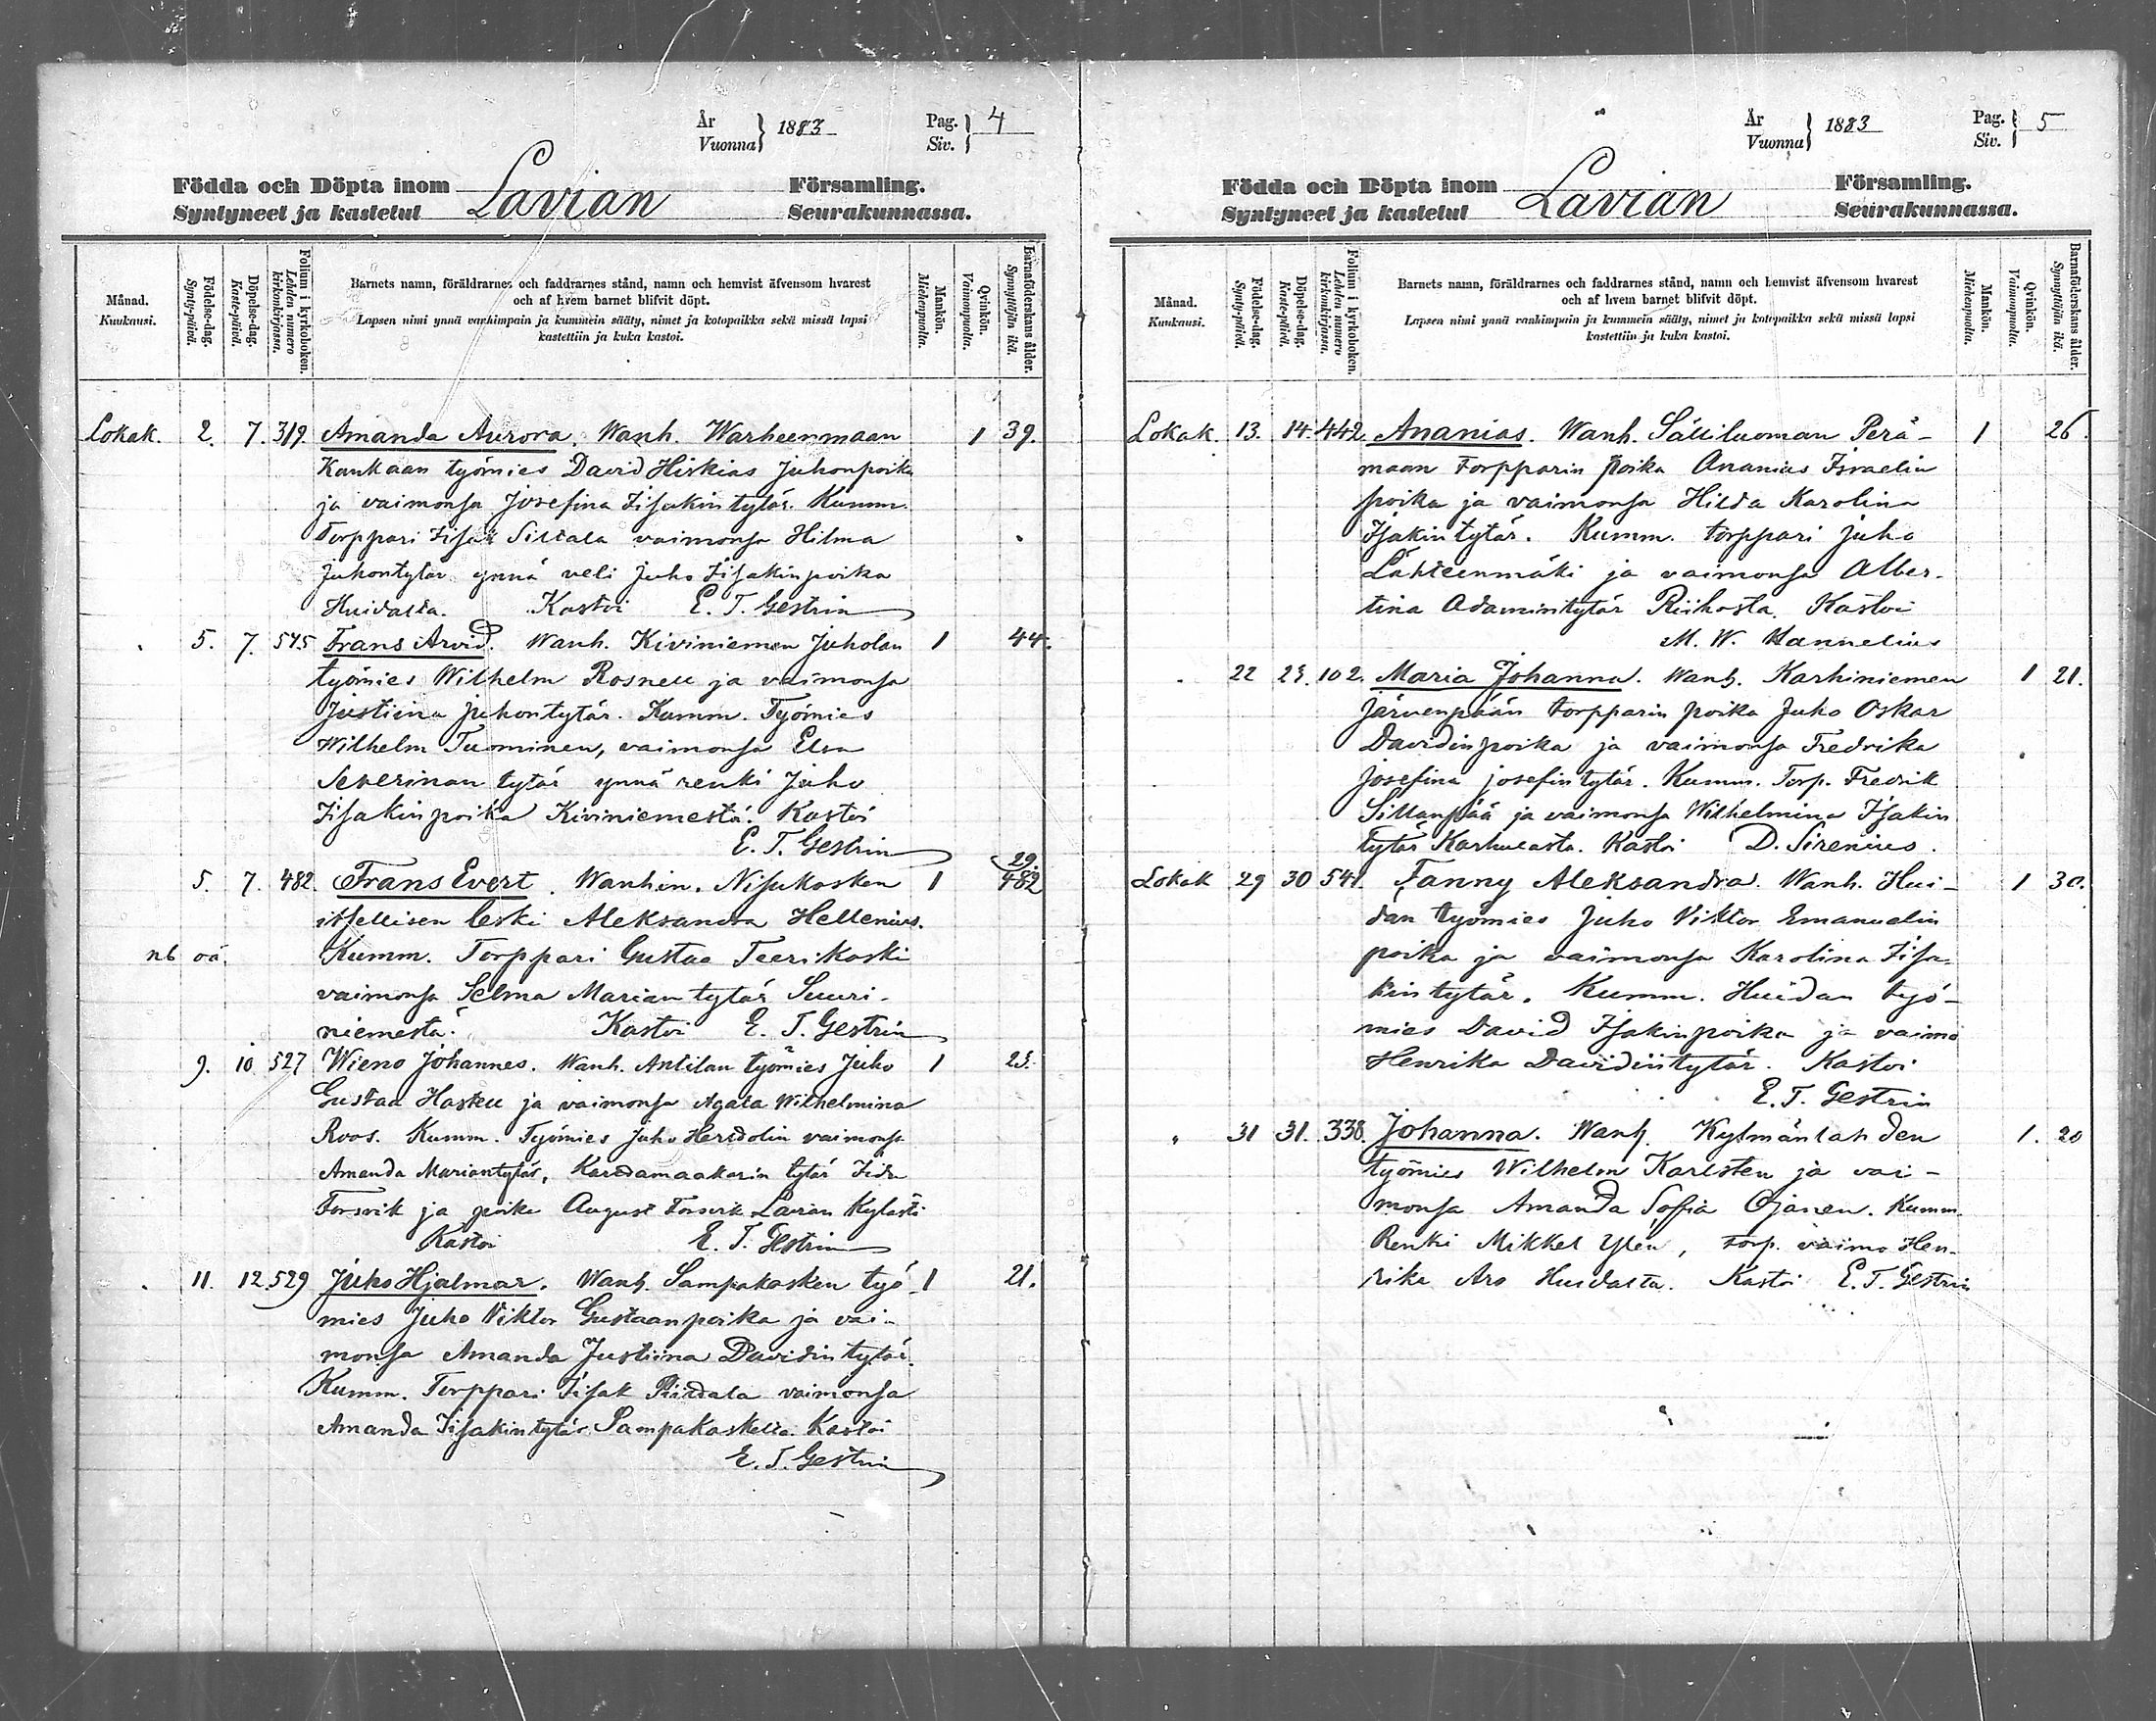 År
Vuonna } 1883
Pag.
Siv. } 4
Födda och Döpta inom
Syntyneet ja kastetut
Lavian
Församling.
Seurakunnassa.
Månad.
Kuukausi.
Födelse-dag.
Synty-päivä.
Döpelse-dag.
Kaste-päivä.
Folium i kyrkoboken.
Lehden numero
kirkonkirjassa.
Barnets namn, föräldrarnes och faddrarnes stånd, namn och hemvist äfvensom hvarest
och af hvem barnet blifvit döpt.
Lapsen nimi ynnä vanhimpain ja kummein sääty, nimet ja kotopaikka sekä missä lapsi
kastettiin ja kuka kastoi.
Mankön.
Miehenpuolia.
Qvinkön.
Vaimonpuolia.
Barnaföderskans ålder.
Synnyttäjän ikä.
Lokak. 2. 7. 319. Amanda Aurora. Wanh. Warheenmaan 1 39.
Kankaan työmies David Hiskias Juhonpoika
ja vaimonsa Josefina Iisakintytär. Kumm.
Torppari Iisak Siltala vaimonsa Hilma
Juhontytär ynnä veli Juho Iisakinpoika
Huidasta. Kastoi E. T. Gestrin
5. 7. 575 Frans Arvid. Wanh. Kiviniemen Juholan 1 44.
työmies Wilhelm Rosnell ja vaimonsa
Justiina Juhontytär. Kumm. Työmies
Wilhelm Tuominen, vaimonsa Elsa
Severinan tytär ynnä renki Juho
Iisakinpoika Kiviniemestä. Kastoi
E. T. Gestrin
5. 7. 482. Frans Evert. Wanhin. Nisukosken 1 29. 482
itsellisen leski Aleksandra Hellenius.
nb oä. Kumm. Torppari Gustaa Teerikoski
vaimonsa Selma Mariantytär Suuri-
niemestä. Kastoi E. T. Gestrin
9. 10 527 Wieno Johannes. Wanh. Antilan työmies Juho 1 23.
Gustaa Haskell ja vaimonsa Agata Wilhelmina
Roos. Kumm. Työmies Juho vaimonsa
Amanda Mariantytär, tytär Iida
Forsvik ja poika August Forsvik Lavian Kylästä
Kastoi E. T. Gestrin
11. 12. 529 Juho Hjalmar. Wanh. Sampakosken työ- 1 21.
mies Juho Viktor Gustaanpoika ja vai-
monsa Amanda Justiina Davidintytär.
Kumm. Torppari Iisak vaimonsa
Amanda Iisakintytär Sampakoskelta. Kastoi
E. T. Gestrin
År
Vuonna } 1883
Pag.
Siv. } 5
Födda och Döpta inom
Syntyneet ja kastetut
Lavian
Församling.
Seurakunnassa.
Månad.
Kuukausi.
Födelse-dag.
Synty-päivä.
Döpelse-dag.
Kaste-päivä.
Folium i kyrkoboken.
Lehden numero
kirkonkirjassa.
Barnets namn, föräldrarnes och faddrarnes stånd, namn och hemvist äfvensom hvarest
och af hvem barnet blifvit döpt.
Lapsen nimi ynnä vanhimpain ja kummein sääty, nimet ja kotopaikka sekä missä lapsi
kastettiin ja kuka kastoi.
Mankön.
Miehenpuolia.
Qvinkön.
Vaimonpuolia.
Barnaföderskans ålder.
Synnyttäjän ikä.
Lokak. 13. 14. 442. Ananias. Wanh. Perä- 1 26.
maan Torpparin poika Ananias Israelin
poika ja vaimonsa Hilda Karolina
Isakintytär. Kumm. torppari Juho
Lähteenmäki ja vaimonsa Alber-
tina Adamintytär Riihosta. Kastoi
M. W. Hannelius
22 23. 102. Maria Johanna. Wanh. Karhiniemen 1 21.
Järvenpään torpparin poika Juho Oskar
Davidinpoika ja vaimonsa Fredrika
Josefina Josefintytär. Kumm. Torp. Fredrik
Sillanpää ja vaimonsa Wilhelmina Isakin
tytär Kastoi D. Sirenius.
Lokak 29 30 541. Fanny Aleksandra. Wanh. Hui- 1 30.
dan työmies Juho Viktor Emanuelin
poika ja vaimonsa Karolina Iisa-
kintytär. Kumm. Huidan työ-
mies David Isakinpoika ja vaimo
Henrika Davidintytär. Kastoi
E. T. Gestrin
" 31 31. 338. Johanna. Wanh. Kylmänlahden 1. 20
työmies Wilhelm Karlsten ja vai-
monsa Amanda Sofia Ojanen. Kumm.
Renki Mikkel Ylén, torp. vaimo Hen-
rika Aro Huidasta. Kastoi E. T. Gestrin